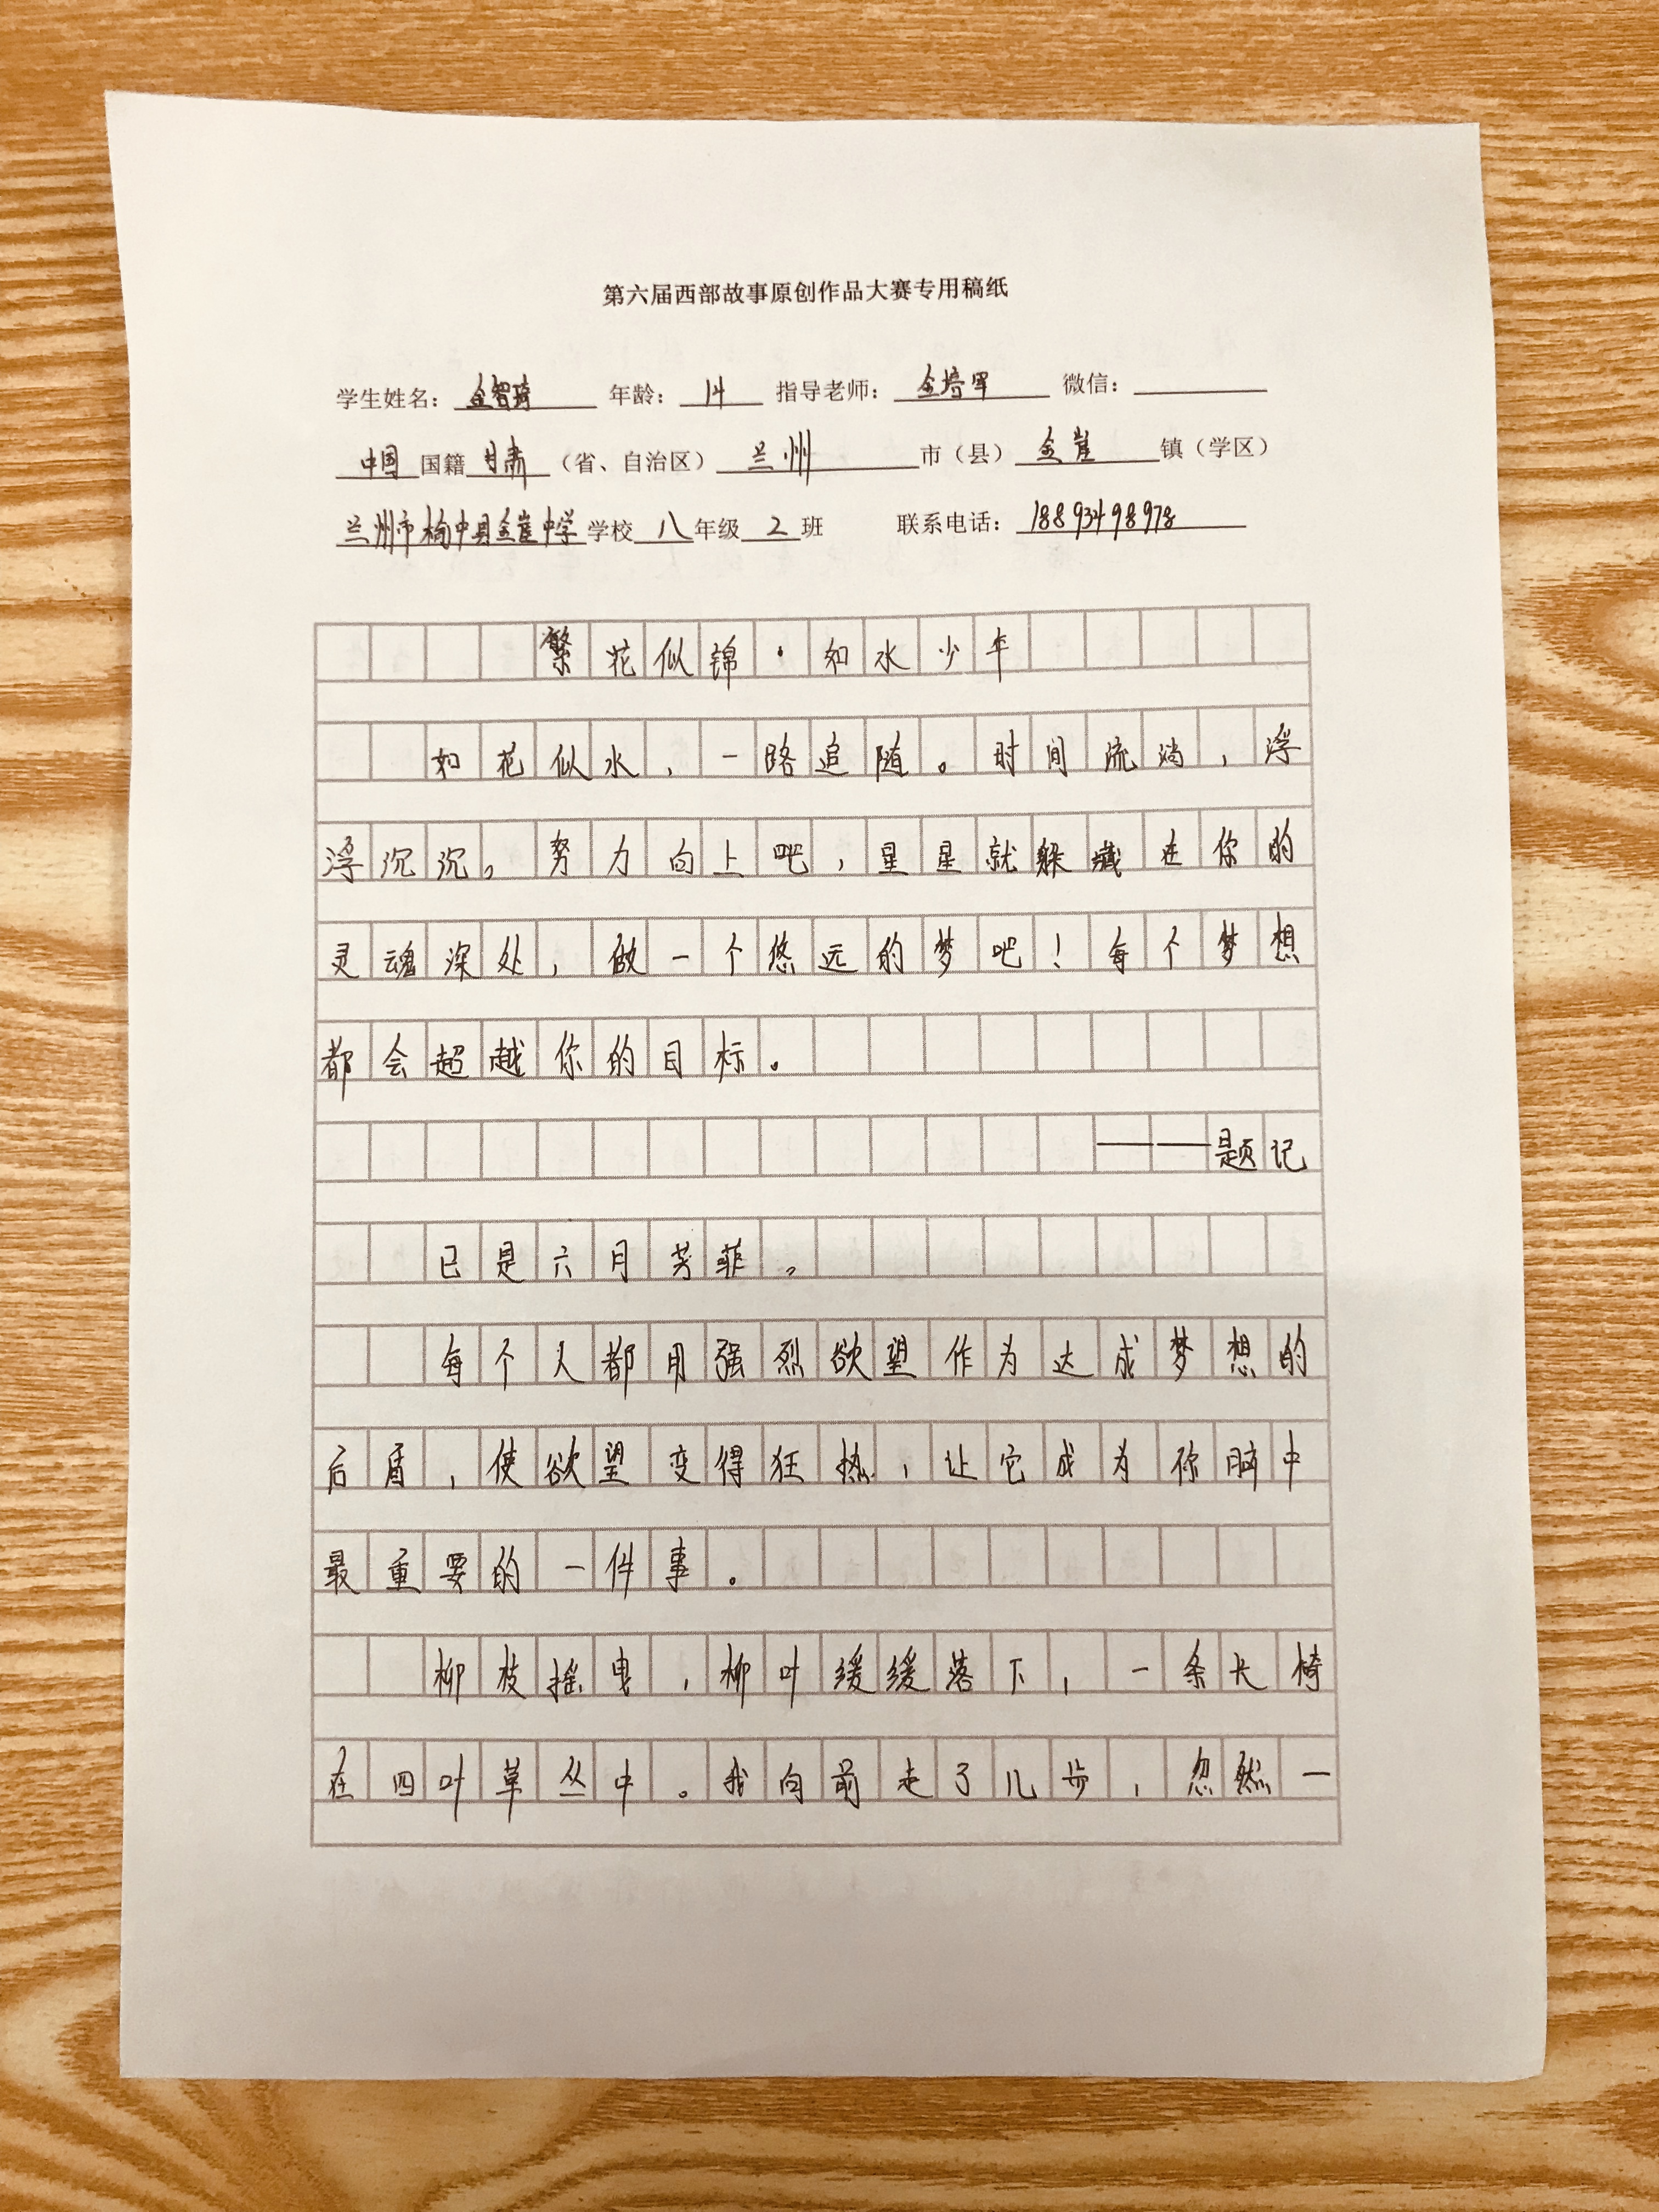 第六届西部故事原创作品大赛专用稿纸
学生姓名：金智琦 年龄：14 指导老师：金培军 微信：
中国国籍甘肃（省、自治区）兰州市（县）金崖镇（学区）
兰州市榆中县金崖中学学校八年级2班 联系电话：18893498978
繁花似锦·如水少年
如花似水，一路追随。时间流淌，浮
浮沉沉。努力向上吧，星星就躲藏在你的
灵魂深处，做一个悠远的梦吧！每个梦想
都会超越你的目标。
——题记
已是六月芳菲。
每个人都用强烈欲望作为达成梦想的
后盾，使欲望变得狂热，让它成为你脑中
最重要的一件事。
柳枝摇曳，柳叶缓缓落下，一条长椅
在四叶草丛中。我向前走了几步，忽然一